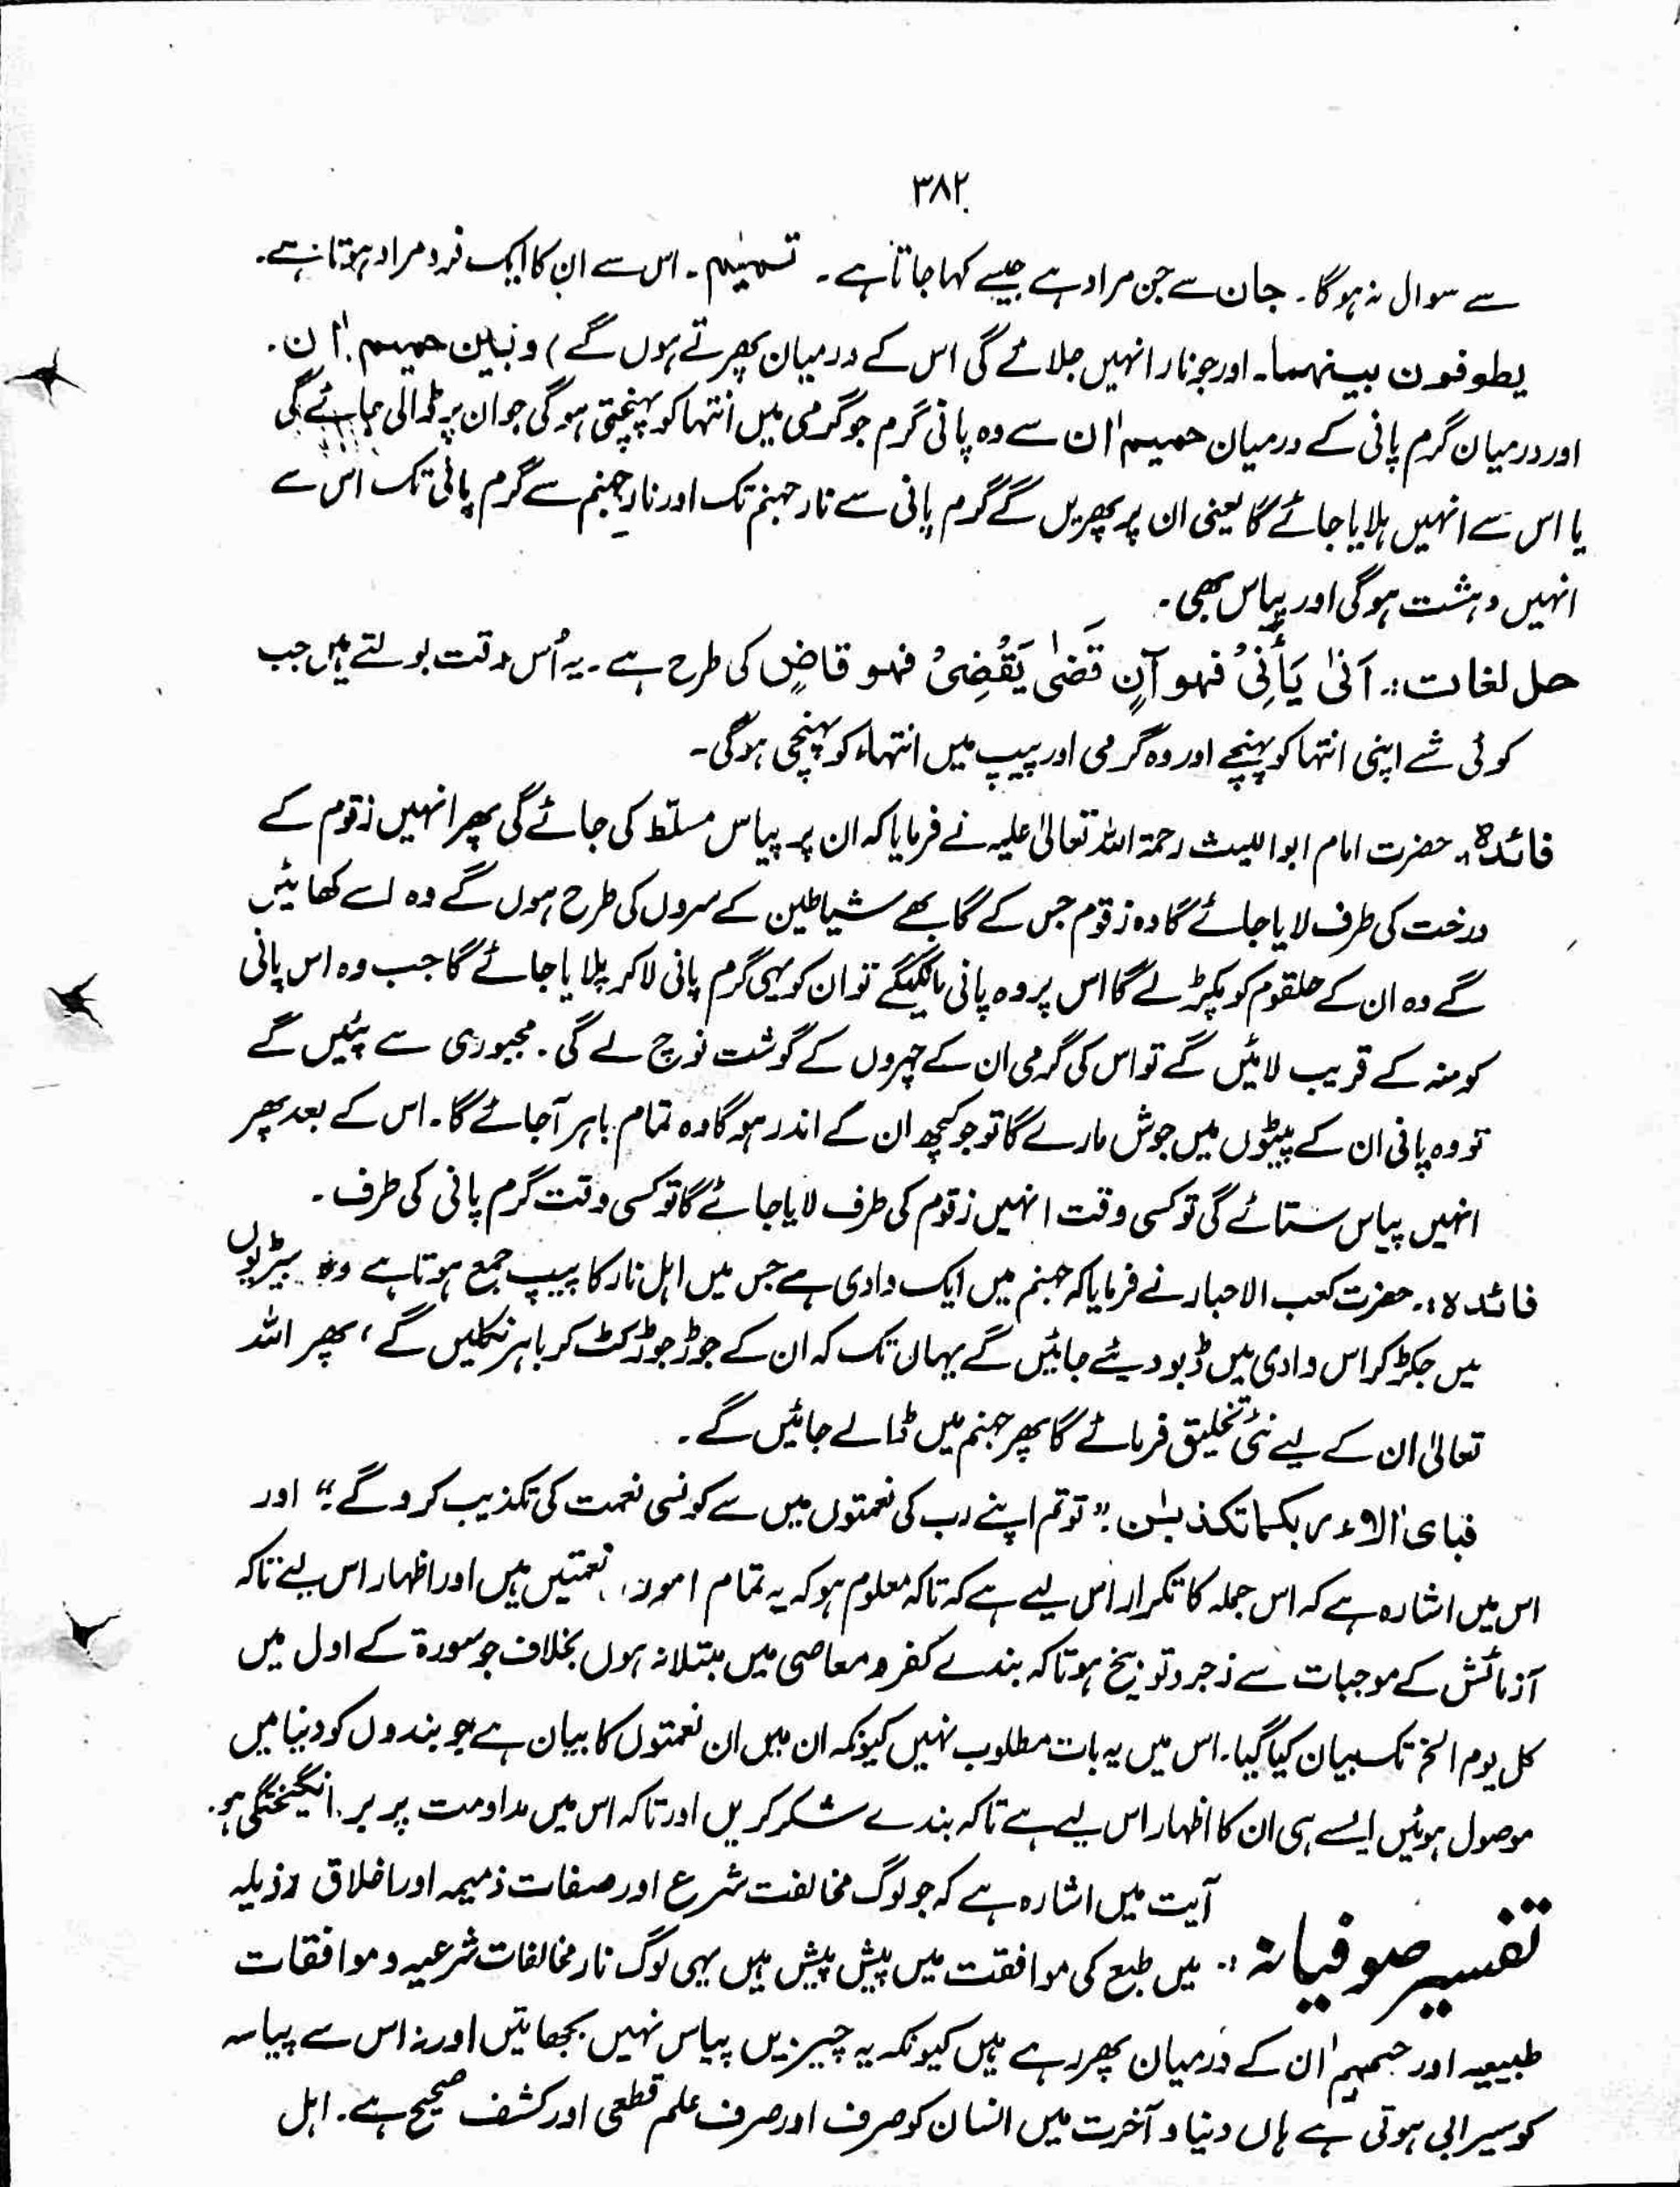 ۳۸۲
سے سوال نہ ہوگا۔ جان سے جن مراد ہے جیسے کہا جاتا ہے۔ تسمیم۔ اس سے ان کا ایک فرد مراد ہوتا ہے۔
یطوفون بینہما۔ اور جو نار انہیں جلائے گی اس کے درمیان پھرتے ہوں گے) و بَین حمیم اٰن۔
اور درمیان گرم پانی کے درمیان حمیم اٰن سے وہ پانی گرم جو گرمی میں انتہا کو پہنچتی ہوگی جو ان پر ڈالی جائے گی
یا اس سے انہیں ہلایا جائے گا یعنی ان پر پھریں گے گرم پانی سے نار جہنم تک اور نار جہنم سے گرم پانی تک اس سے
انہیں دہشت ہوگی اور پیاس بھی۔
حل لغات:۔ آنیٰ یَأنِیُ فہو آنٍ قَضیٰ یَقْضِیُ فہو قاضٍ کی طرح ہے۔ یہ اُس وقت بولتے ہیں جب
کوئی شے اپنی انتہا کو پہنچے اور وہ گرمی اور پیپ میں انتہاء کو پہنچی ہوگی۔
فائدہ:۔ حضرت امام ابو اللیث رحمۃ اللہ تعالیٰ علیہ نے فرمایا کہ ان پر پیاس مسلّط کی جائے گی پھر انہیں زقوم کے
درخت کی طرف لایا جائے گا وہ زقوم جس کے گابھے شیاطین کے سروں کی طرح ہوں گے وہ اسے کھائیں
گے وہ ان کے حلقوم کو پکڑ لے گا اس پر وہ پانی مانگیں گے تو ان کو یہی گرم پانی لا کر پلایا جائے گا جب وہ اس پانی
کو منہ کے قریب لائیں گے تو اس کی گرمی ان کے چہروں کے گوشت نوچ لے گی۔ مجبوری سے پئیں گے
تو وہ پانی ان کے پیٹوں میں جوش مارے گا تو جو کچھ ان کے اندر ہوگا وہ تمام باہر آجائے گا۔ اس کے بعد پھر
انہیں پیاس ستائے گی تو کسی وقت انہیں زقوم کی طرف لایا جائے گا تو کسی وقت گرم پانی کی طرف۔
فائدہ:۔ حضرت کعب الاحبار نے فرمایا کہ جہنم میں ایک وادی ہے جس میں اہل نار کا پیپ جمع ہوتا ہے وہ بیڑیوں
میں جکڑ کر اس وادی میں ڈبو دیئے جائیں گے یہاں تک کہ ان کے جوڑ جوڑ کٹ کر باہر نکلیں گے، پھر اللہ
تعالیٰ ان کے لیے نئی تخلیق فرمائے گا پھر جہنم میں ڈالے جائیں گے۔
فبای اٰلاء ربکما تکذبٰن؛ "تو تم اپنے رب کی نعمتوں میں سے کونسی نعمت کی تکذیب کرو گے؛" اور
اس میں اشارہ ہے کہ اس جملہ کا تکرار اس لیے ہے کہ تاکہ معلوم ہو کہ یہ تمام امور، نعمتیں ہیں اور اظہار اس لیے تاکہ
آزمائش کے موجبات سے زجر و توبیخ ہو تاکہ بندے کفر و معاصی میں مبتلا نہ ہوں بخلاف جو سورۃ کے اول میں
کل یوم الخ تک بیان کیا گیا۔ اس میں یہ بات مطلوب نہیں کیونکہ ان میں ان نعمتوں کا بیان ہے جو بندوں کو دنیا میں
موصول ہوئیں ایسے ہی ان کا اظہار اس لیے ہے تاکہ بندے شکر کریں اور تاکہ اس میں مداومت پر بر انگیختگی ہو۔
آیت میں اشارہ ہے کہ جو لوگ مخالفت شرع اور صفات ذمیمہ اور اخلاق رذیلہ
تفسیر صوفیانہ:۔ میں طبع کی موافقت میں پیش پیش ہیں یہی لوگ نار مخالفات شرعیہ و موافقات
طبیعیہ اور حمیم اٰن کے درمیان پھر رہے ہیں کیونکہ یہ چیزیں پیاس نہیں بجھاتیں اور نہ اس سے پیاسہ
کو سیرابی ہوتی ہے ہاں دنیا و آخرت میں انسان کو صرف اور صرف علم قطعی اور کشف صحیح ہے۔ اہل